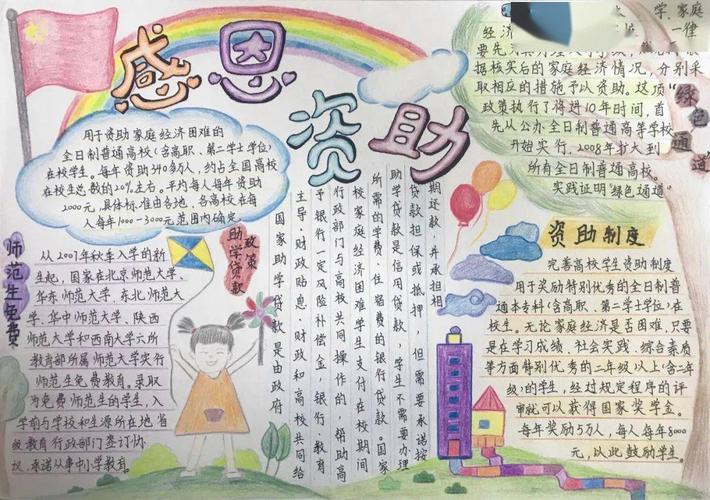 感恩
资助
用于资助家庭经济困难的
全日制普通高校(含高职、第二学士学位)
在校学生。每年资助约0多万人，约占全国高校
在校生总数的20%左右。平均每人每年资助
2000元，具体标准由各地、各高校在每
人每年1000—3000元范围内确定。
师范生免费
从2007年秋季入学的新
生起，国家在北京师范大学、
华东师范大学、东北师范大
学、华中师范大学、陕西
师范大学和西南大学六所
教育部所属师范大学实行
师范生免费教育。录取
为免费师范生的学生，入
学前与学校和生源所在地省
级教育行政部门签订协
议，承诺从事中小学教育。
政策
助学贷款
国家助学贷款是由政府
主导、财政贴息、财政和高校共同给
予银行一定风险补偿金，银行、教育
行政部门与高校共同操作的，帮助高
校家庭经济困难学生支付在校期间
所需的学费、住宿费的银行贷款。国家
助学贷款是信用贷款，学生不需要办理
贷款担保或抵押，但需要承诺按
期还款，并承担相
学、家庭
经济
一律
要先
据核实后的家庭经济情况，分别采
取相应的措施予以资助。这项
政策执行了将进10年时间，首
先从公办全日制普通高等学校
开始实行，2008年扩大到
所有全日制普通高校。
实践证明"绿色通道"
绿色通道
资助制度
完善高校学生资助制度
用于奖励特别优秀的全日制普
通本专科(含高职、第二学士学位)在
校生。无论家庭经济是否困难，只要
是在学习成绩、社会实践、综合素质
等方面特别优秀的二年级以上(含二年
级)的学生，经过规定程序的评
审就可以获得国家奖学金。
每年奖励5万人，每人每年8000
元，以此鼓励学生。